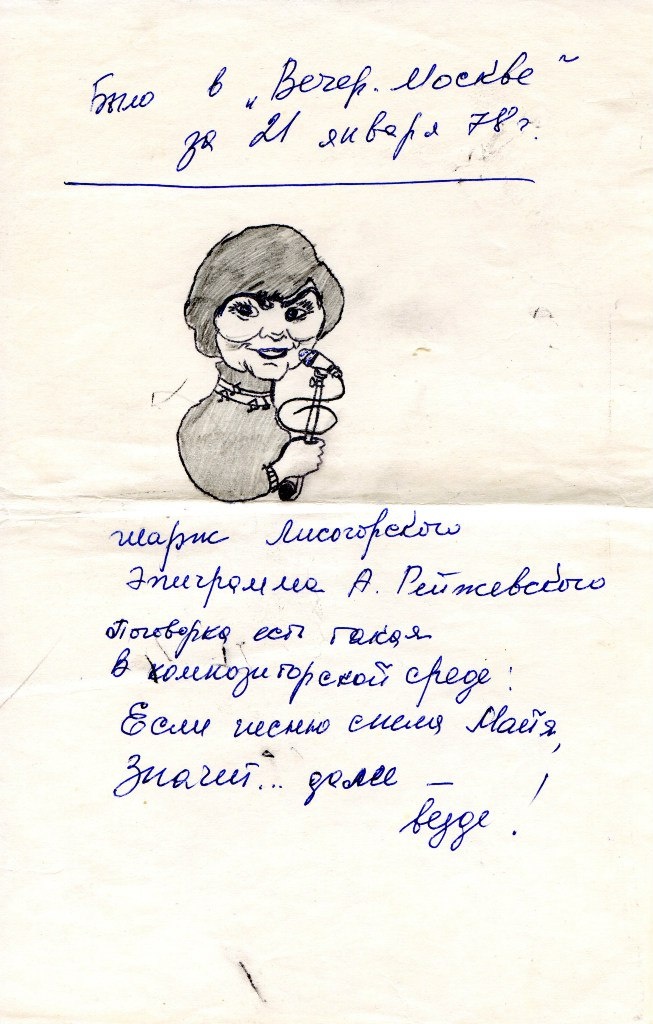 Было в „Вечер. Москве"
за 21 января 78 г.
шарж Лисогорского
Эпиграмма А. Рейжевского
Поговорка есть такая
В композиторской среде:
Если песню спела Майя,
Значит... далее —
везде!